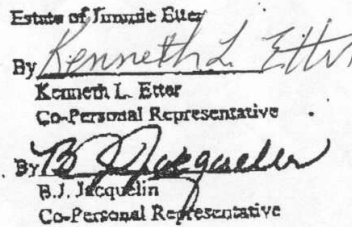 Estate of Jimmie Etter
By Kenneth L. Etter
Kenneth L. Etter
Co-Personal Representative
By B J Jacquelin
B.J. Jacquelin
Co-Personal Representative